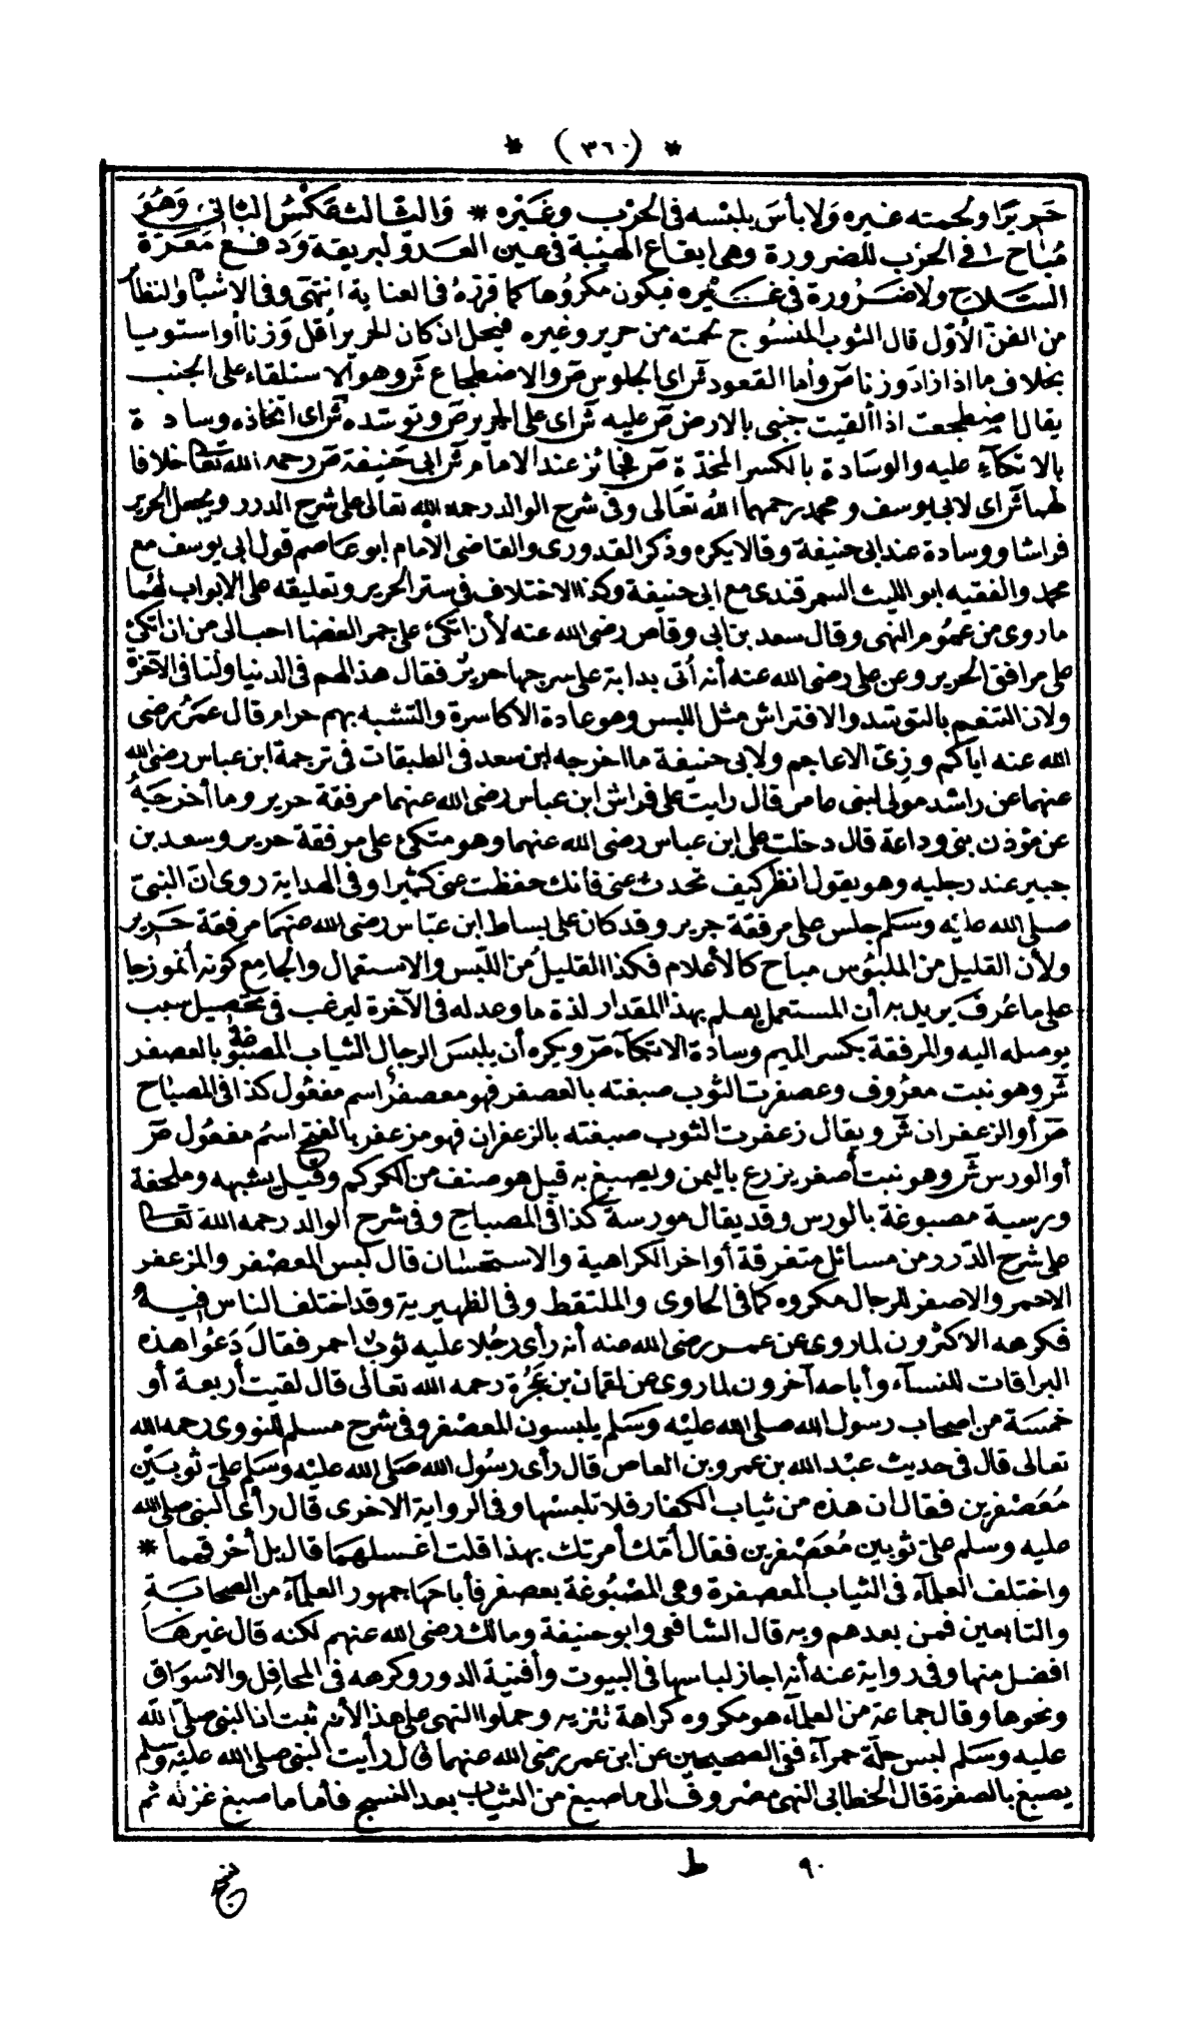 * (٣٦٠) *
حريرا ولحمته غيره ولا بأس بلبسه في الحرب وغيره * والثالث عكس الثاني وهو
مباح ثر في الحرب للضرورة وهي ايقاع الهيبة في عين العدو لبريقه ودفع معرة
السلاح ولا ضرورة في غيره فيكون مكروها كما قرره في العناية انتهى وفي الاشباه والنظائر
من الفن الأول قال الثوب المنسوج لحمته من حرير وغيره فيحل ان كان الحرير أقل وزنا أو استويا
بخلاف ما اذا زاد وزنا صر وأما القعود ثر اي الجلوس صر والاضطجاع ثر وهو الاستلقاء على الجنب
يقال اضطجعت اذا ألقيت جنبي بالارض صر عليه ثر اي على الحرير صر وتوسده ثر اي اتخاذه وسادة
بالاتكاء عليه والوسادة بالكسر المخدة صر فجائز عند الامام ثر ابي حنيفة صر رحمه الله تعالى خلافا
لهما ثر اي لابي يوسف ومحمد رحمهما الله تعالى وفي شرح الوالد رحمه الله تعالى على شرح الدرر ويجعل الحرير
فراشا ووسادة عند ابي حنيفة وقالا يكره وذكر القدوري والقاضي الامام ابو عاصم قول ابي يوسف مع
محمد والفقيه ابو الليث السمرقندي مع ابي حنيفة وكذا الاختلاف في ستر الحرير وتعليقه على الابواب لهما
ما روى من عموم النهي وقال سعد بن ابي وقاص رضي الله عنه لأن اتكئ على جمر الغضا احب الى من ان اتكئ
على مرافق الحرير وعن علي رضي الله عنه أنه أتى بدابة على سرجها حرير فقال هذا لهم في الدنيا ولنا في الآخرة
ولان التنعم بالتوسد والافتراش مثل اللبس وهو عادة الاكاسرة والتشبه بهم حرام وقال عمر رضي
الله عنه اياكم وزي الاعاجم ولابي حنيفة ما اخرجه ابن سعد في الطبقات في ترجمة ابن عباس رضي الله
عنهما عن راشد مولى لبني عامر قال رايت على فراش ابن عباس رضي الله عنهما مرفقة حرير وما أخرجه
عن مؤذن بني وداعة قال دخلت على ابن عباس رضي الله عنهما وهو متكئ على مرفقة حرير وسعد بن
جبير عند رجليه وهو يقول انظر كيف تحدث عني فانك حفظت عني كثيرا وفي الهداية روى ان النبي
صلى الله عليه وسلم جلس على مرفقة حرير وقد كان على بساط ابن عباس رضي الله عنهما مرفقة حرير
ولأن القليل من الملبوس مباح كالأعلام فكذا القليل من اللبس والاستعمال والجامع كونه أنموزجا
على ما عرف يريد به أن المستعمل يعلم بهذا المقدار لذة ما وعد له في الآخرة ليرغب في تحصيل سبب
يوصله اليه والمرفقة بكسر الميم وسادة الاتكاء صر ويكره أن يلبس الرجال الثياب المصبوغة بالعصفر
ثر وهو نبت معروف وعصفرت الثوب صبغته بالعصفر فهو معصفر اسم مفعول كذا في المصباح
صر أو الزعفران ثر ويقال زعفرت الثوب صبغته بالزعفران فهو مزعفر بالفتح اسم مفعول صر
أو الورس ثر وهو نبت أصفر يزرع باليمن ويصبغ به قيل هو صنف من الكركم وقيل يشبهه وملحفة
ورسية مصبوغة بالورس وقد يقال مورسة كذا في المصباح وفي شرح الوالد رحمه الله تعالى
على شرح الدرر من مسائل متفرقة أواخر الكراهية والاستحسان قال لبس المعصفر والمزعفر
الاحمر والاصفر للرجال مكروه كما في الحاوى والملتقط وفي الظهيرية وقد اختلف الناس فيه
فكرهه الاكثرون لما روى عن عمر رضي الله عنه أنه رأى رجلا عليه ثوب احمر فقال دعوا هذه
البراقات للنساء وأباحه آخرون لما روى عن لقمان بن عجرة رحمه الله تعالى قال لقيت أربعة أو
خمسة من اصحاب رسول الله صلى الله عليه وسلم يلبسون المعصفر وفي شرح مسلم للنووي رحمه الله
تعالى قال في حديث عبد الله بن عمرو بن العاص قال رأى رسول الله صلى الله عليه وسلم علي ثوبين
معصفرين فقال ان هذه من ثياب الكفار فلا تلبسها وفي الرواية الاخرى قال رأى النبي صلى الله
عليه وسلم علي ثوبين معصفرين فقال أمك أمرتك بهذا قلت اغسلهما قال بل أحرقهما *
واختلف العلماء في الثياب المعصفرة وهي المصبوغة بعصفر فأباحها جمهور العلماء من الصحابة
والتابعين فمن بعدهم وبه قال الشافعي وابو حنيفة ومالك رضي الله عنهم لكنه قال غيرها
افضل منها وفي رواية عنه أنه اجاز لباسها في البيوت وأفنية الدور وكرهه في المحافل والاسواق
ونحوها وقال جماعة من العلماء هو مكروه كراهة تنزيه وحملوا النهي على هذا لأنه ثبت ان النبي صلى الله
عليه وسلم لبس حلة حمراء ففي الصحيحين عن ابن عمر رضي الله عنهما قال رأيت النبي صلى الله عليه وسلم
يصبغ بالصفرة قال الخطابي النهي مصروف الى ما صبغ من الثياب بعد النسج فأما ما صبغ غزله ثم
٩٠ ط
نسج